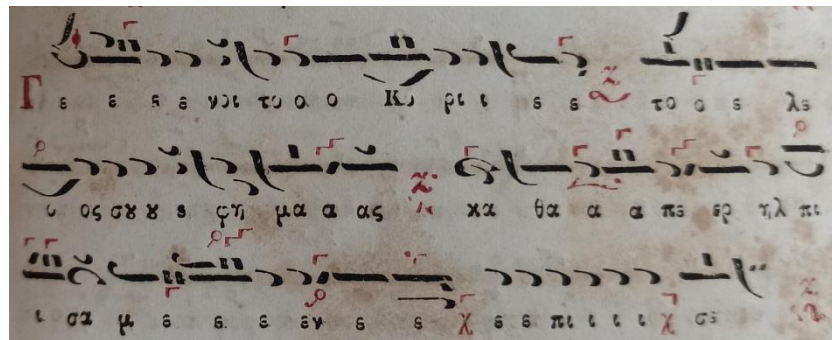 Γ ε ε ε ε νοι το ο ο Κυ ρι ι ε ε το ο ε λε
ι ος σου ου ε φη μα α ας κα θα α α πε ερ ηλ πι
ι σα μ ε ε ε εν ε ε χ ε ε πι ι ι ι χ σε